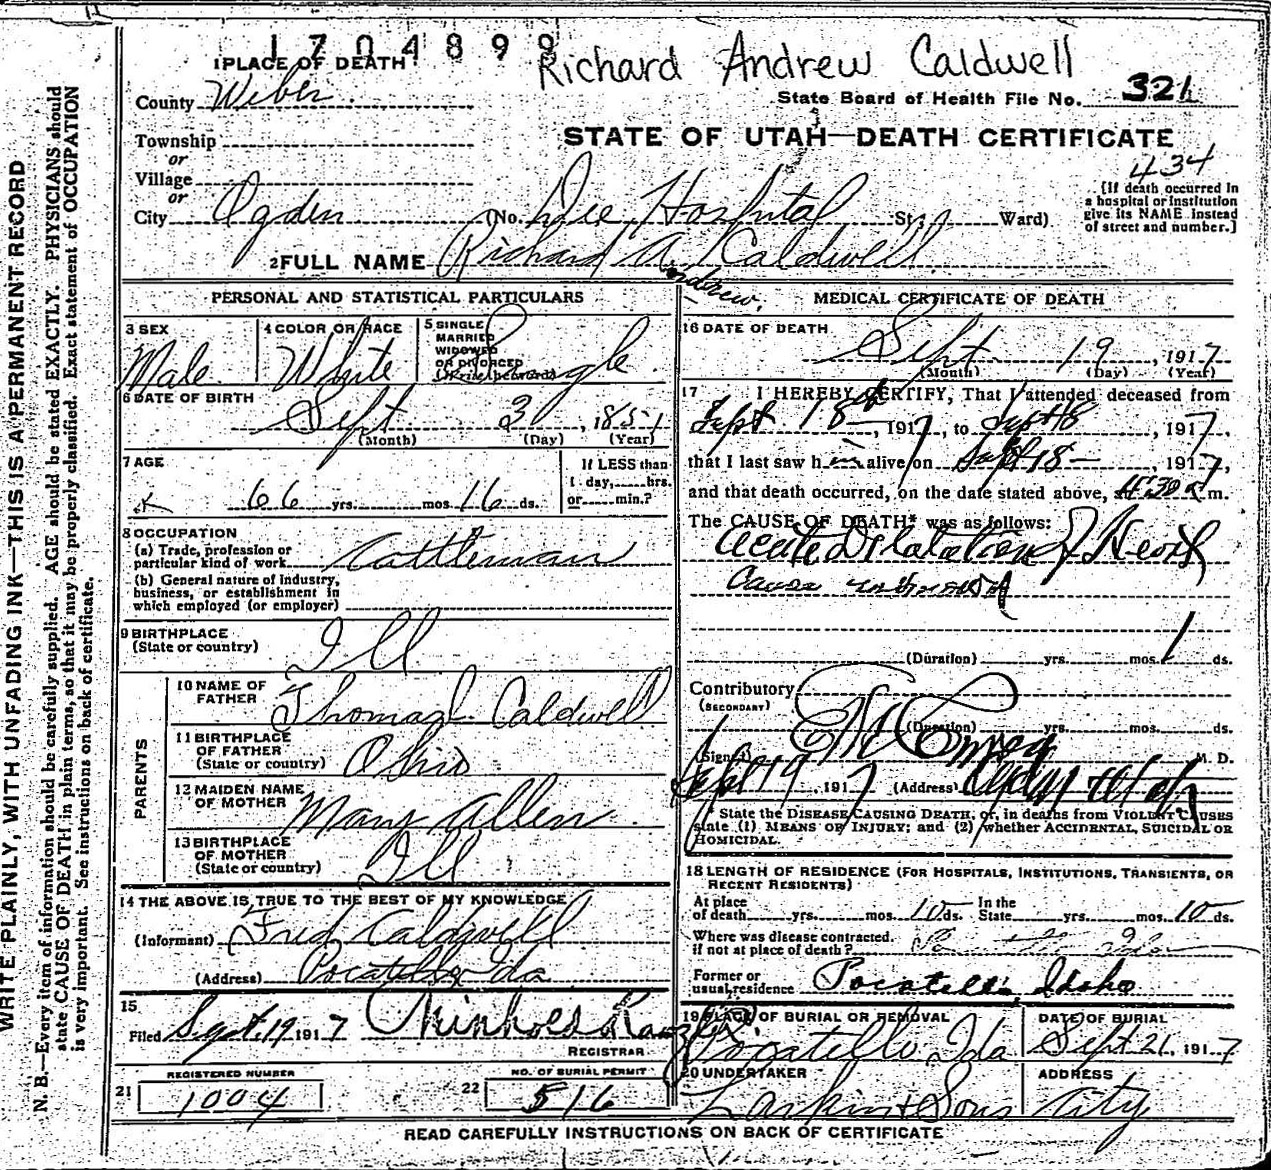 1704899
Richard Andrew Caldwell
1 PLACE OF DEATH
County Weber
State Board of Health File No. 321
STATE OF UTAH—DEATH CERTIFICATE
Township
or
Village
or
434
[If death occurred in
a hospital or institution
give its NAME instead
of street and number.]
City Ogden (No. Dee Hospital St., Ward)
2 FULL NAME Richard A. Caldwell
Andrew
PERSONAL AND STATISTICAL PARTICULARS
3 SEX
Male
4 COLOR OR RACE
White
5 SINGLE
MARRIED
WIDOWED
OR DIVORCED
(Write the word)
Single
6 DATE OF BIRTH
Sept 3, 1851
(Month) (Day) (Year)
7 AGE
66 yrs. mos. 16 ds.
If LESS than
1 day, hrs.
or min.?
8 OCCUPATION
(a) Trade, profession or
particular kind of work Cattleman
(b) General nature of industry,
business, or establishment in
which employed (or employer)
9 BIRTHPLACE
(State or country) Ill
PARENTS
10 NAME OF
FATHER Thomas L. Caldwell
11 BIRTHPLACE
OF FATHER
(State or country) Ohio
12 MAIDEN NAME
OF MOTHER Mary Allen
13 BIRTHPLACE
OF MOTHER
(State or country) Ill
14 THE ABOVE IS TRUE TO THE BEST OF MY KNOWLEDGE
(Informant) Fred Caldwell
(Address) Pocatello Ida
15
Filed Sept. 19 1917
REGISTRAR
21 REGISTERED NUMBER
1004
22 NO. OF BURIAL PERMIT
516
MEDICAL CERTIFICATE OF DEATH
16 DATE OF DEATH
Sept 19, 1917
(Month) (Day) (Year)
17 I HEREBY CERTIFY, That I attended deceased from
Sept 18th, 1917, to Sept 18, 1917,
that I last saw him alive on Sept 18—, 1917,
and that death occurred, on the date stated above, at m.
The CAUSE OF DEATH* was as follows:
Acute Dilatation of Heart
Cause unknown
(Duration) yrs. mos. 1 ds.
Contributory
(SECONDARY)
(Duration) yrs. mos. ds.
(Signed) M. D.
Sept 19, 1917 (Address) Ogden Utah
* State the DISEASE CAUSING DEATH, or, in deaths from VIOLENT CAUSES
state (1) MEANS OF INJURY; and (2) whether ACCIDENTAL, SUICIDAL OR
HOMICIDAL.
18 LENGTH OF RESIDENCE (FOR HOSPITALS, INSTITUTIONS, TRANSIENTS, OR
RECENT RESIDENTS)
At place
of death yrs. mos. 10 ds. In the
State yrs. mos. 10 ds.
Where was disease contracted.
if not at place of death? Pocatello Ida
Former or
usual residence Pocatello, Idaho
19 PLACE OF BURIAL OR REMOVAL
Pocatello Ida
DATE OF BURIAL
Sept 21, 1917
20 UNDERTAKER
Larkin & Sons
ADDRESS
City
READ CAREFULLY INSTRUCTIONS ON BACK OF CERTIFICATE
WRITE PLAINLY, WITH UNFADING INK—THIS IS A PERMANENT RECORD
N. B.—Every item of information should be carefully supplied. AGE should be stated EXACTLY. PHYSICIANS should
state CAUSE OF DEATH in plain terms, so that it may be properly classified. Exact statement of OCCUPATION
is very important. See instructions on back of certificate.